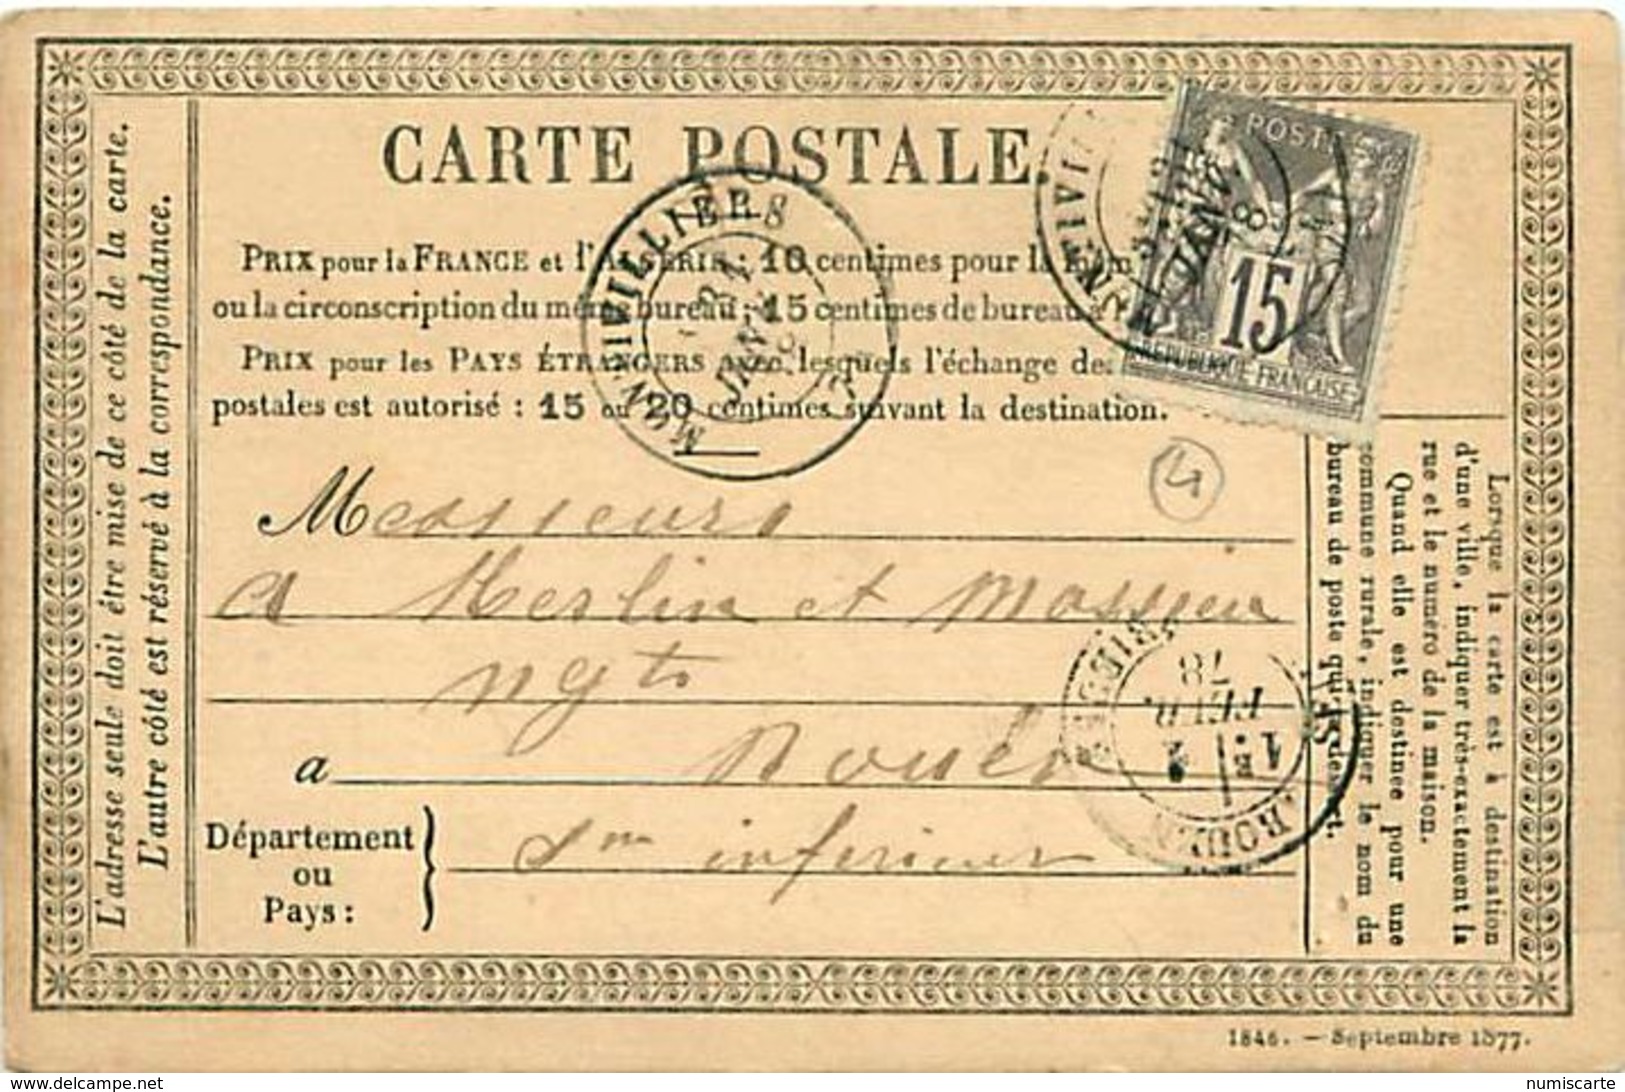 CARTE POSTALE
PRIX pour la FRANCE et l'ALGÉRIE : 10 centimes pour la
ou la circonscription du même bureau ; 15 centimes de bureau à
PRIX pour les PAYS ÉTRANGERS avec lesquels l'échange des
postales est autorisé : 15 ou 20 centimes suivant la destination.
L'adresse seule doit être mise de ce côté de la carte.
L'autre côté est réservé à la correspondance.
POSTES
15
REPUBLIQUE FRANÇAISE
MONTIVILLIERS
31
JANV.
78
JANV.
78
4
Messieurs
A Merlin et Massieu
ngts
a Rouen
Département
ou
Pays :
Sne inferieure
ROUEN
1
FEVR.
78
Lorsque la carte est à destination
d'une ville, indiquer très-exactement la
rue et le numéro de la maison.
Quand elle est destinée pour une
commune rurale, indiquer le nom du
bureau de poste qui la dessert.
1846. — Septembre 1877.
delcampe.net
numiscarte